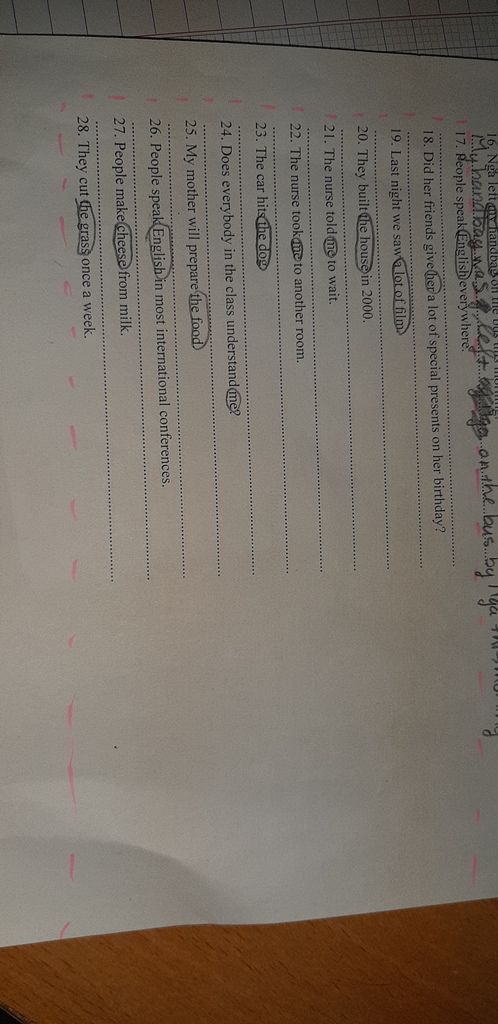 My handbag was left on the bus by Nga
17. People speak English everywhere?
18. Did her friends give her a lot of special presents on her birthday?
19. Last night we saw a lot of film
20. They built the house in 2000.
21. The nurse told me to wait.
22. The nurse took me to another room.
23. The car hits the dog
24. Does everybody in the class understand me?
25. My mother will prepare the food
26. People speak English in most international conferences.
27. People make cheese from milk.
28. They cut the grass once a week.